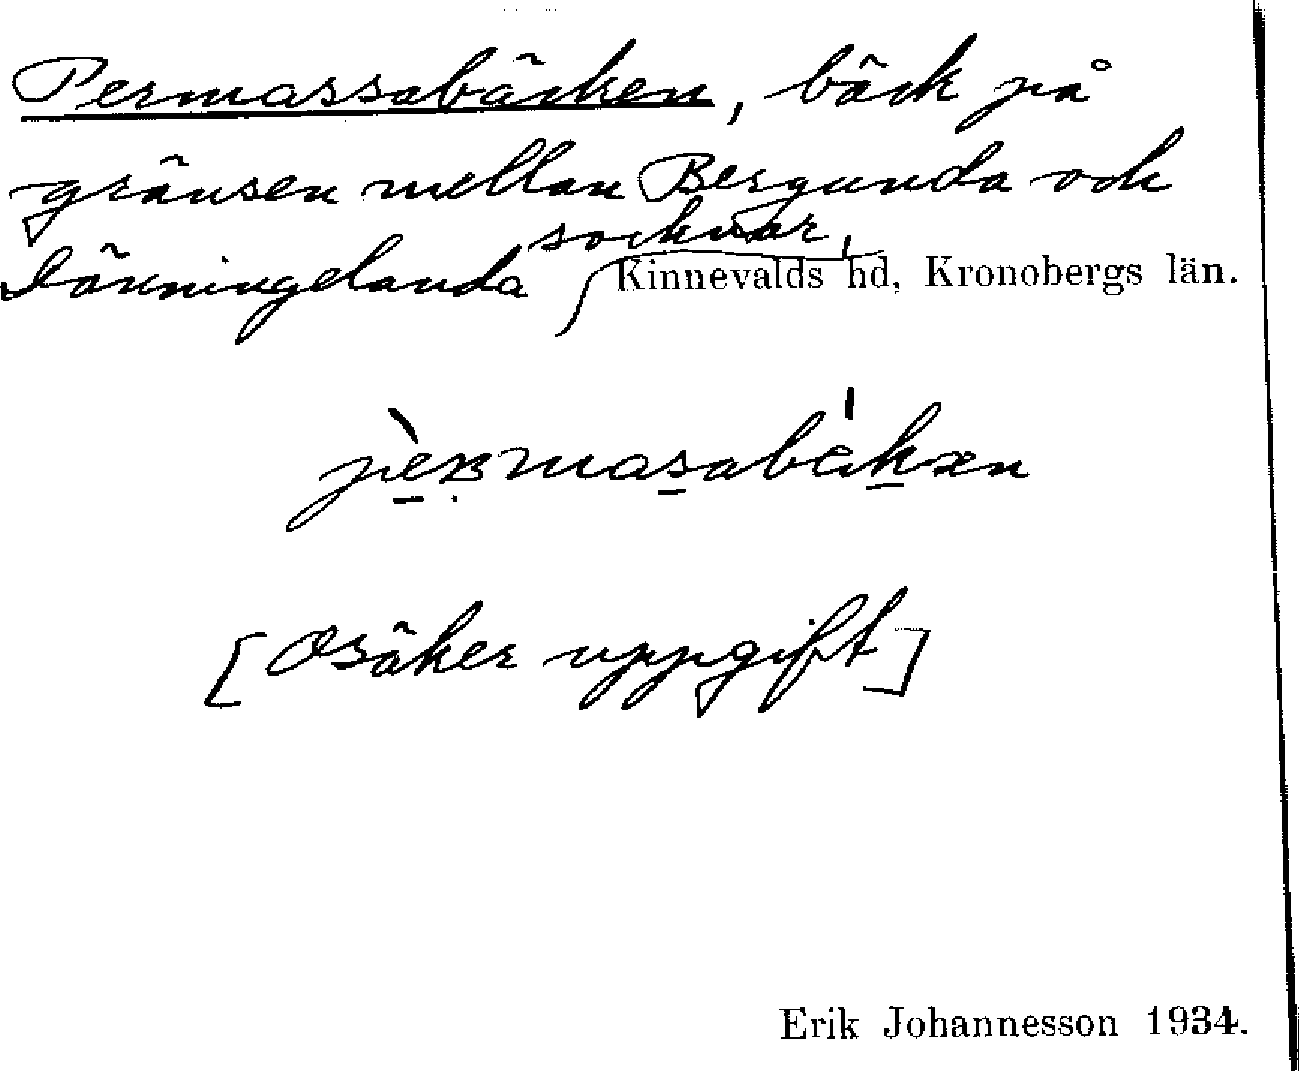 Permassabäcken, bäck på
gränsen mellan Bergunda och
socknar,
Jäunningelanda Kinnevalds hd, Kronobergs län.
pèrmasabäkən
[Osäker uppgift]
Erik Johannesson 1934.